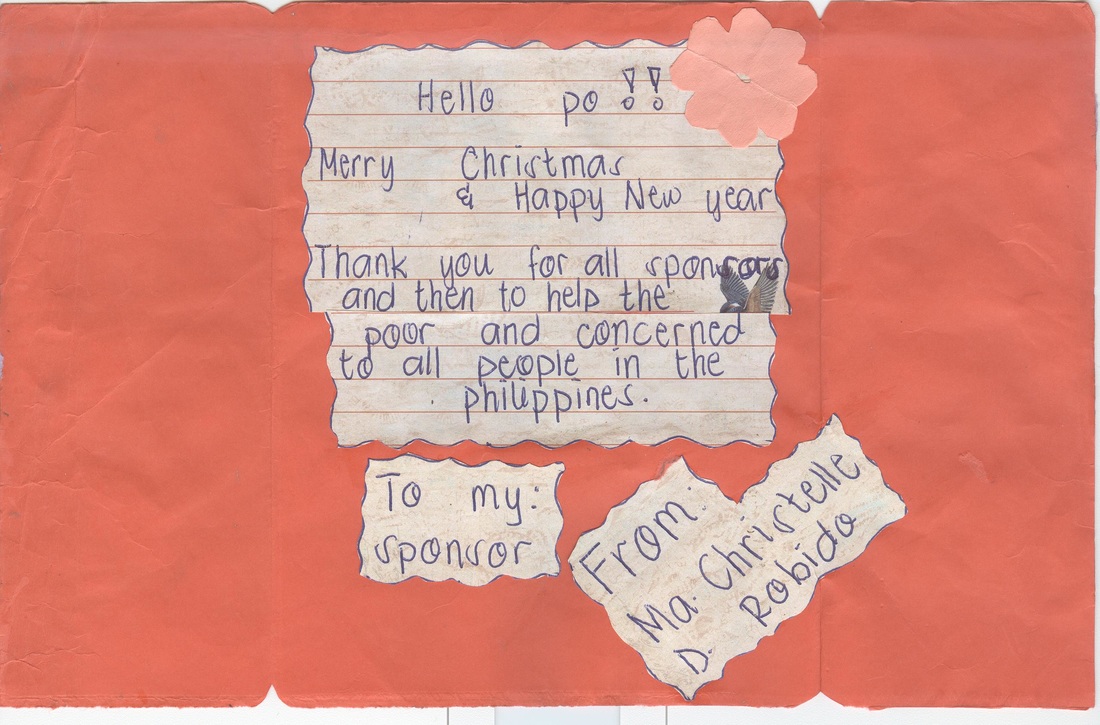 Hello po !!
Merry Christmas
& Happy New year
Thank you for all sponsors
and then to help the
poor and concerned
to all people in the
philippines.
To my:
sponsor
From:
Ma. Christelle
D. Robido